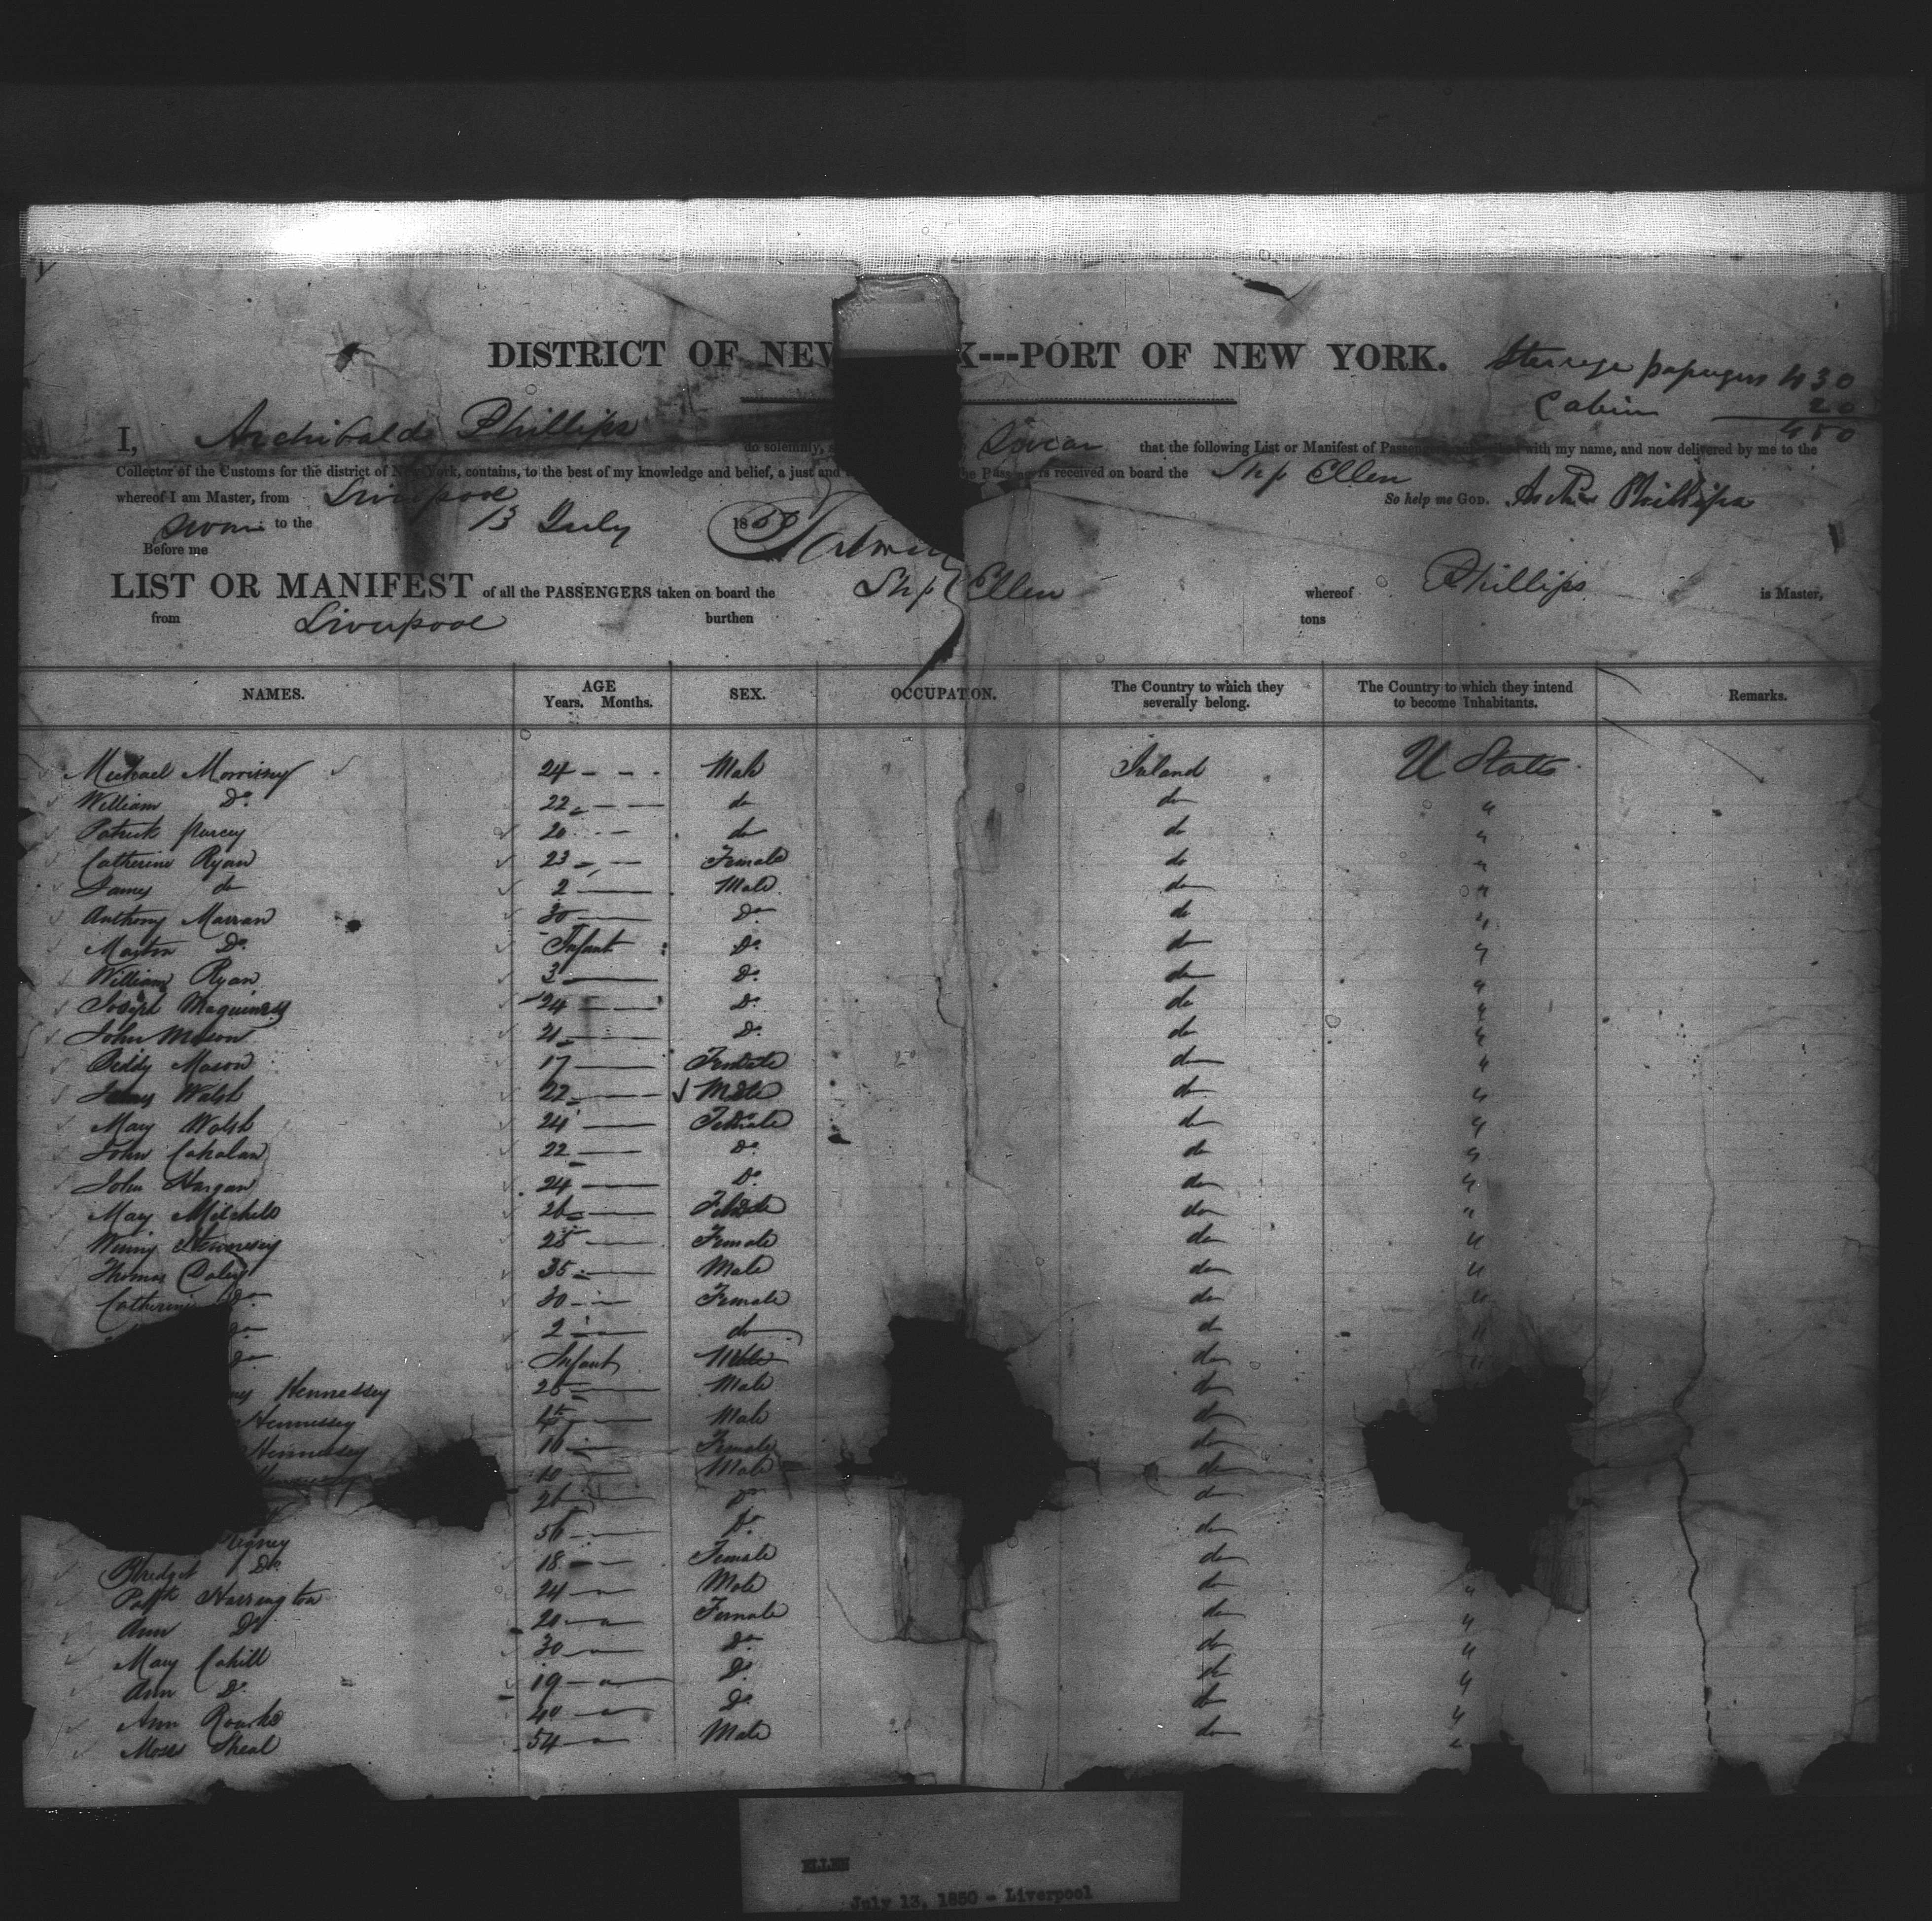 DISTRICT OF NEW X---PORT OF NEW YORK.
Steerage passengers 430
Cabin 20
450
I, Archibald Phillips do solemnly, swear that the following List or Manifest of Passengers subscribed with my name, and now delivered by me to the
Collector of the Customs for the district of New York, contains, to the best of my knowledge and belief, a just and the Passengers received on board the Ship Ellen
whereof I am Master, from Liverpool So help me GOD. Archd Phillips
Sworn to the 13 July 1850
Before me
LIST OR MANIFEST of all the PASSENGERS taken on board the Ship Ellen whereof Phillips is Master,
from Liverpool burthen tons
NAMES. AGE Years. Months. SEX. OCCUPATION. The Country to which they severally belong. The Country to which they intend to become Inhabitants. Remarks.
Michael Morrissey 24 - - - Male Ireland U States
William Do 22 — — do do "
Patrick Purcey 20 - — do do "
Catherine Ryan 23 - — Female do "
James do 2 — Male do "
Anthony Marran 30 — Do do "
Martin Do Infant Do do "
William Ryan 3 — Do do "
Joseph Maguiness 24 — Do do "
John Mason 21 — Do do "
Biddy Mason 17 — Female do "
James Walsh 22 — Male do "
Mary Walsh 24 — Female do "
John Cahalan 22 — Do do "
John Hargan 24 — Do do "
Mary Mitchell 26 — Female do "
Winny Hennessy 25 — Female do "
Thomas Daley 35 — Male do "
Catherine Do 30 — Female do "
Do 2 — do do "
Do Infant Male do "
Hennessey 25 — Male do
Hennessey — Male do
Hennessey 16 — Female do
10 — Male do
26 — Do do
56 — Do do
Bridget Do 18 — Female do
Patk Harrington 24 — Male do "
Ann Do 20 — Female do "
Mary Cahill 30 — Do do "
Ann Do 19 — Do do "
Ann Rourke 40 — Do do "
Moses Sheal 54 — Male do "
ELLEN
July 13, 1850 - Liverpool